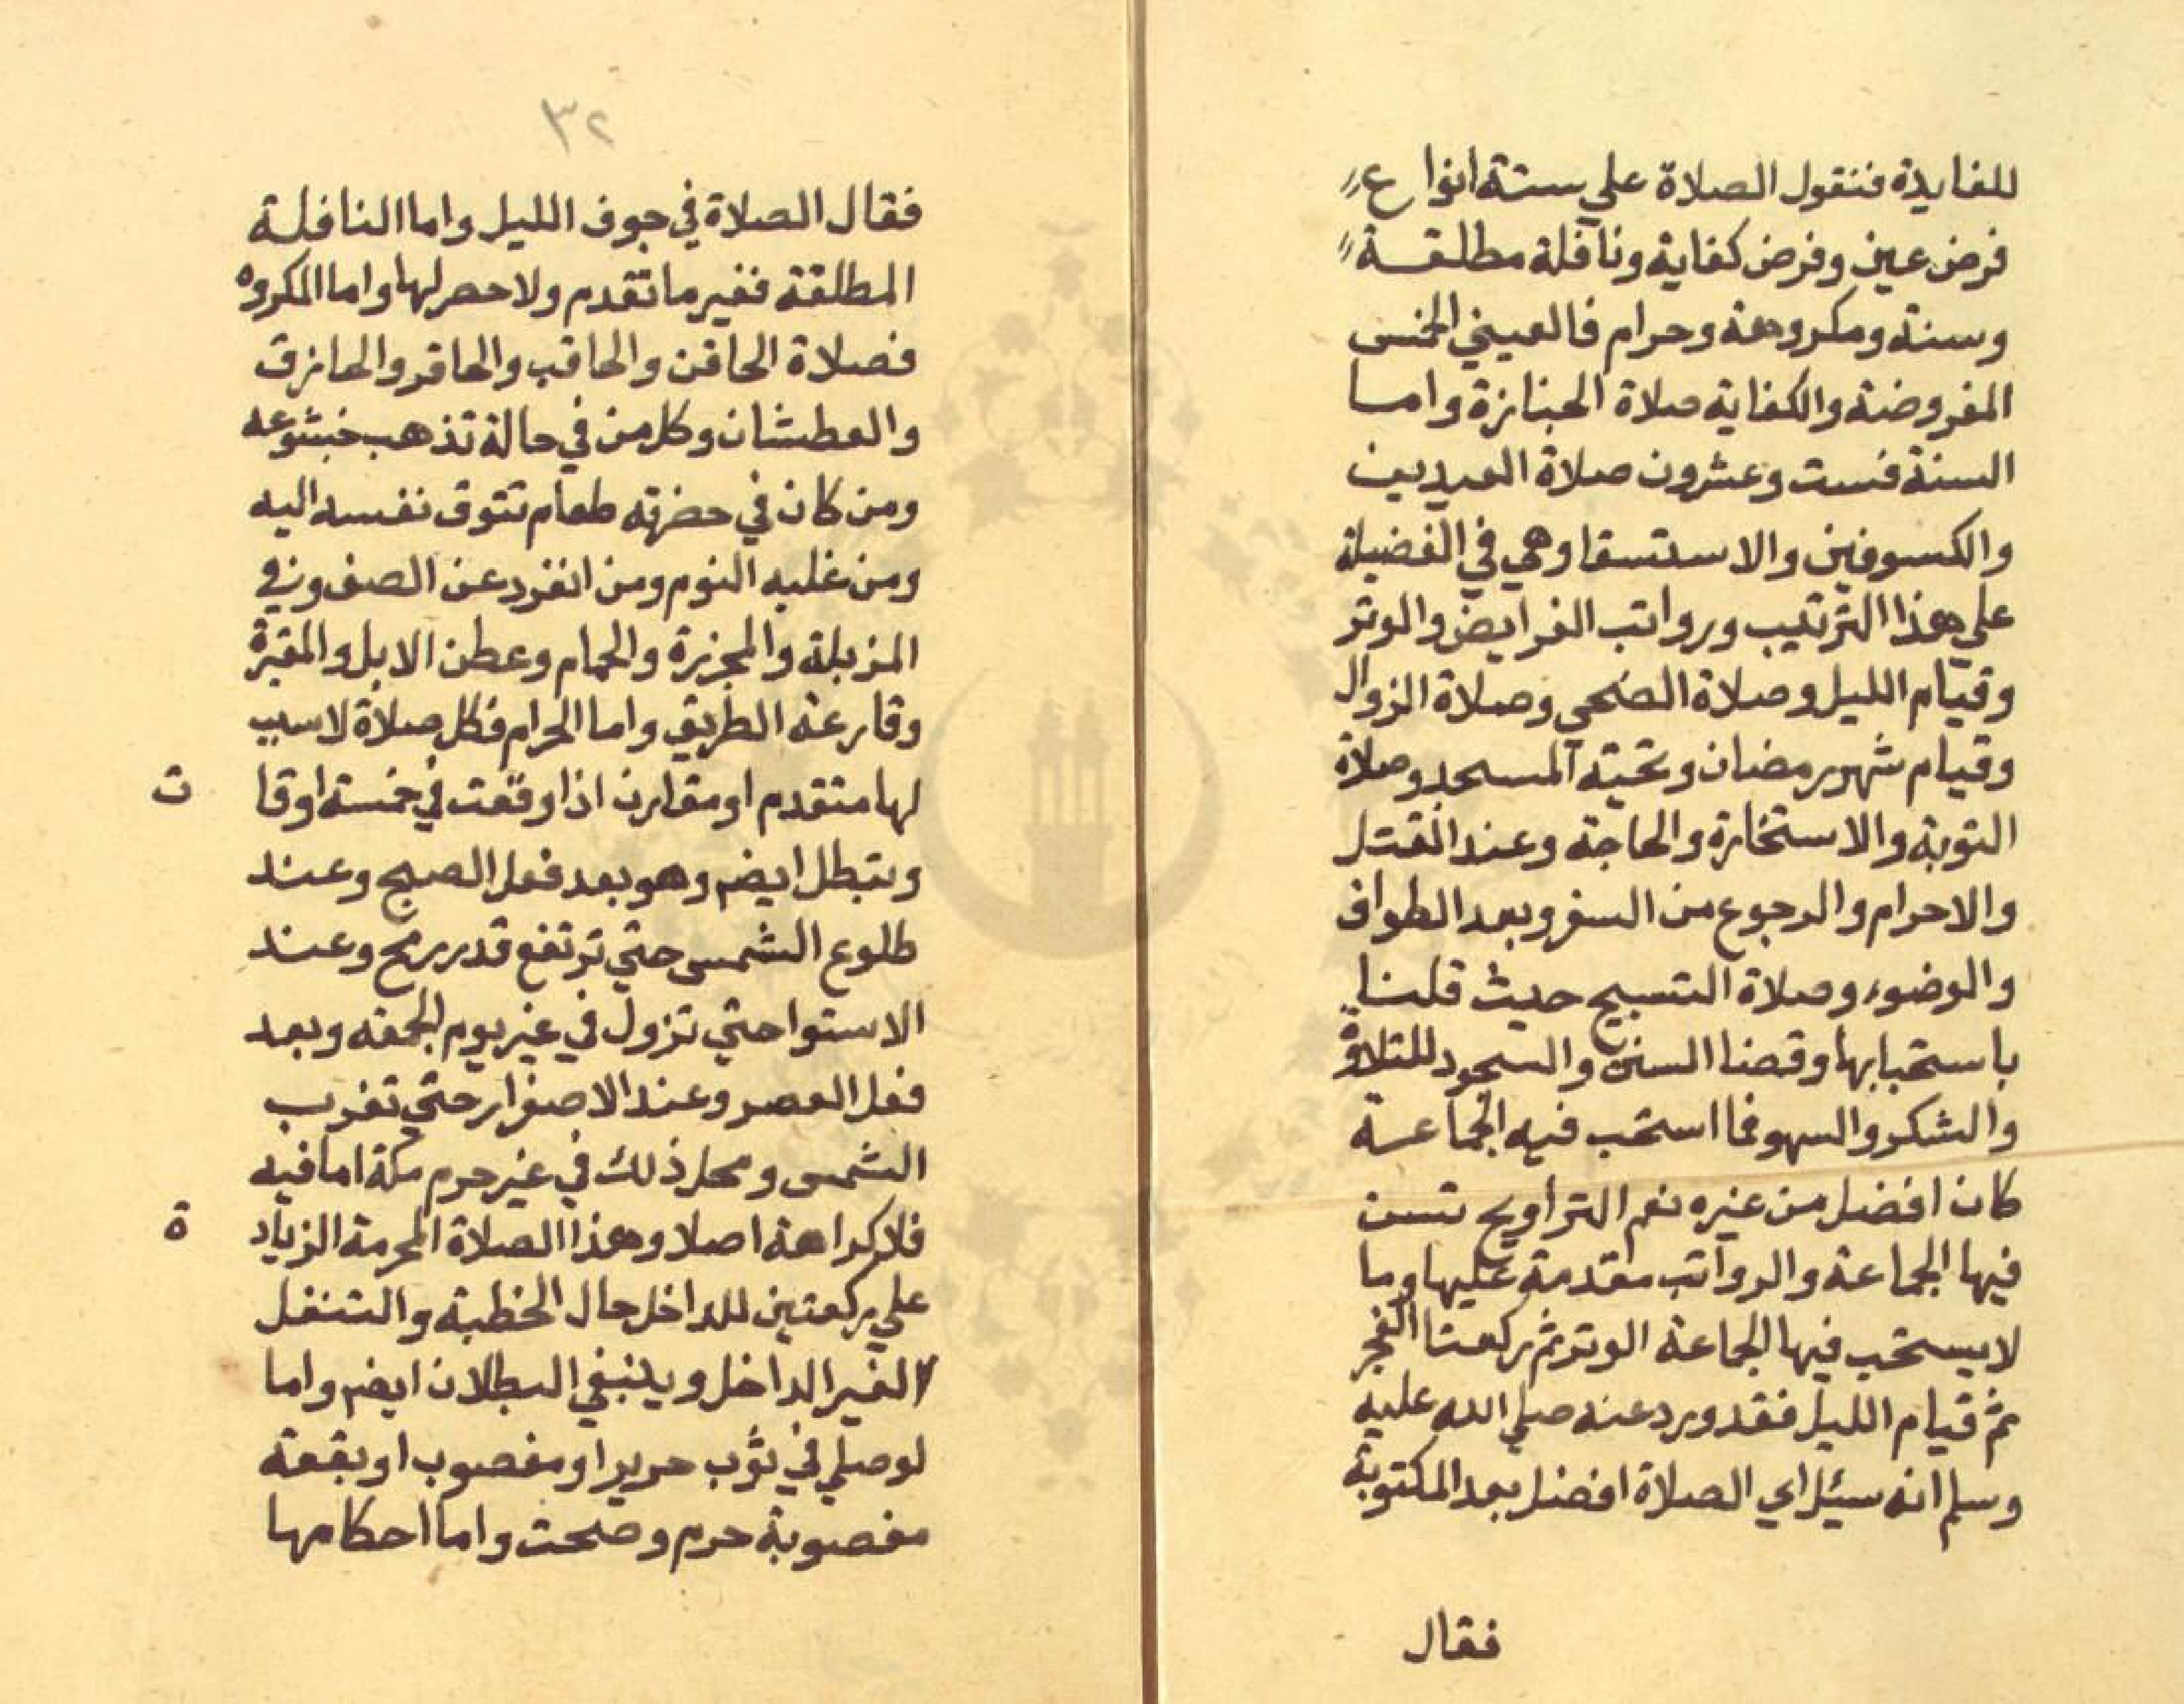 للفايدة فنقول الصلاة علي ستة انواع
فرض عين وفرض كفاية ونافلة مطلقة
وسنة ومكروهة وحرام فالعيني الخمس
المفروضة والكفاية صلاة الجنازة واما
السنة فست وعشرون صلاة العيدين
والكسوفين والاستسقا وهي في الفضيلة
علي هذا الترتيب ورواتب الفرايض والوتر
وقيام الليل وصلاة الضحي وصلاة الزوال
وقيام شهر رمضان وتحية المسجد وصلاة
التوبة والاستخارة والحاجة وعند القتل
والاحرام والرجوع من السفر وبعد الطواف
والوضوء وصلاة التسبيح حيث قلنا
باستحبابها وقضا السنن والسجود للتلاوة
والشكر والسهو فما استحب فيه الجماعة
كان افضل من غيره نعم التراويح تسن
فيها الجماعة والرواتب مقدمة عليها وما
لا يستحب فيها الجماعة الوتر ثم ركعتا الفجر
ثم قيام الليل فقد ورد عنه صلي الله عليه
وسلم انه سيئل اي الصلاة افضل بعد المكتوبة
فقال
٣٢
فقال الصلاة في جوف الليل واما النافلة
المطلقة فغير ما تقدم ولا حصر لها واما المكروه
فصلاة الحاقن والحاقب والحاقر والحازق
والعطشان وكل من في حالة تذهب خشوعه
ومن كان في حضرته طعام تتوق نفسه اليه
ومن غلبه النوم ومن انفرد عن الصف وفي
المزبلة والمجزرة والحمام وعطن الابل والمقبرة
وقارعة الطريق واما الحرام فكل صلاة لا سبب
لها متقدم او مقارن اذا وقعت في خمسة اوقات
وتبطل ايضم وهو بعد فعل الصبح وعند
طلوع الشمس حتي ترتفع قدر رمح وعند
الاستوا حتي تزول في غير يوم الجمعة وبعد
فعل العصر وعند الاصفرار حتي تغرب
الشمس ومحل ذلك في غير حرم مكة اما فيه
فلا كراهة اصلا وهذا الصلاة المحرمة الزيادة
علي ركعتين للداخل حال الخطبة والتنفل
لغير الداخل وينبغي البطلان ايضم واما
لو صلي في ثوب حرير او مغصوب او بقعة
مغصوبة حرم وصحت واما احكامها